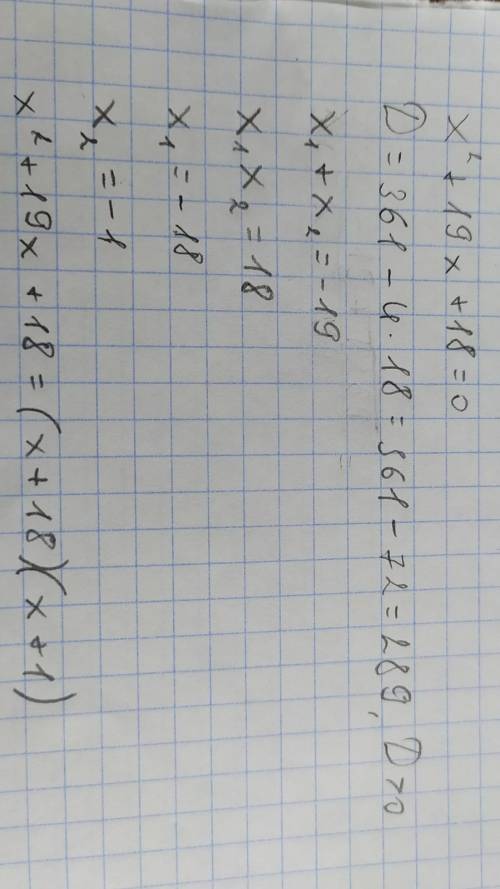 x² + 19x + 18 = 0
D = 361 - 4·18 = 361 - 72 = 289, D>0
x₁ + x₂ = -19
x₁x₂ = 18
x₁ = -18
x₂ = -1
x² + 19x + 18 = (x + 18)(x + 1)